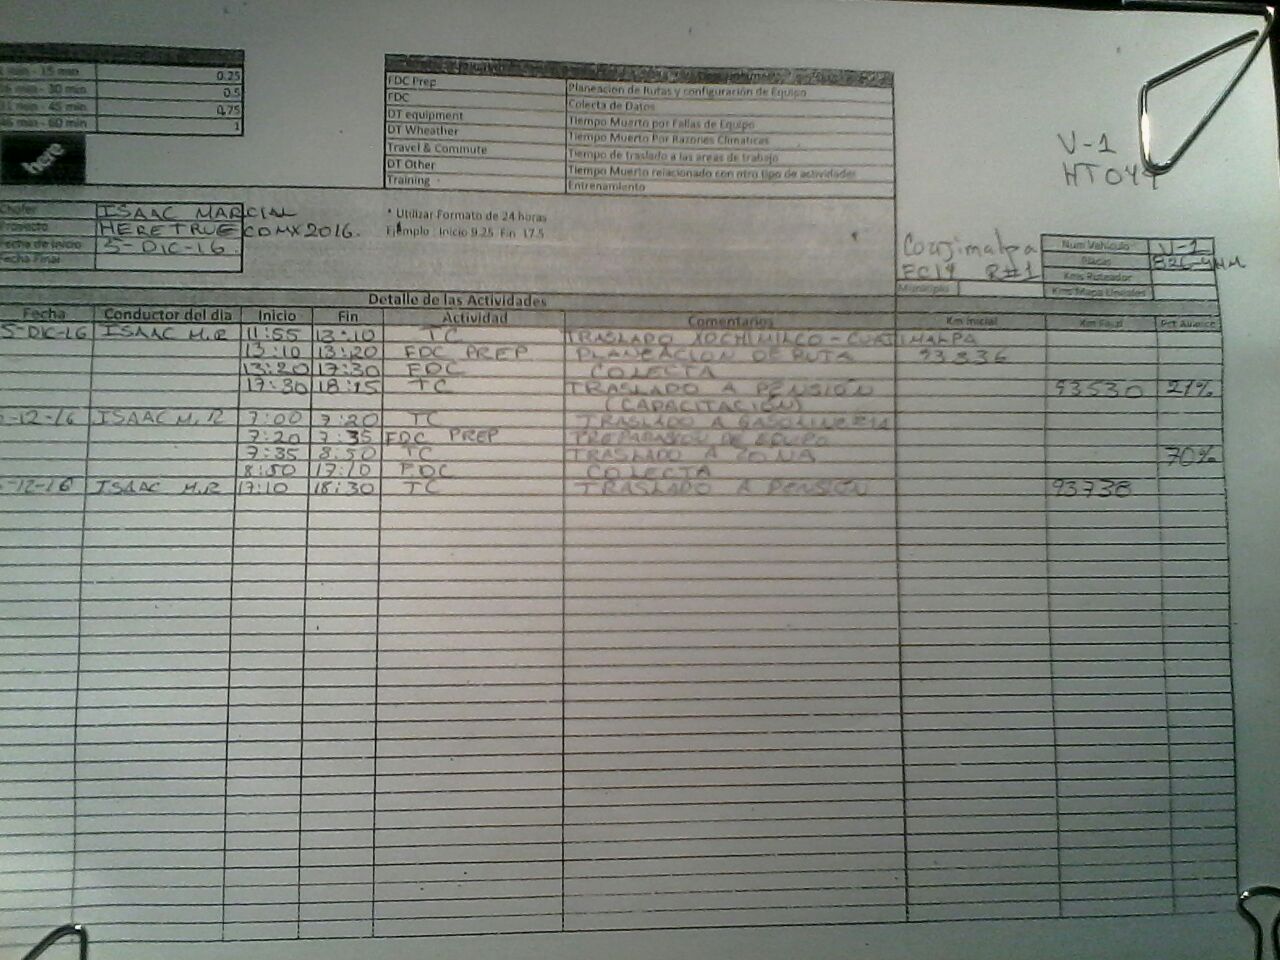 min - 15 min 0.25
min - 30 min 0.5
min - 45 min 0.75
min - 60 min 1
here
FDC Prep Planeacion de Rutas y configuración de Equipo
FDC Colecta de Datos
DT equipment Tiempo Muerto por Fallas de Equipo
DT Wheather Tiempo Muerto Por Razones Climaticas
Travel & Commute Tiempo de traslado a las areas de trabajo
DT Other Tiempo Muerto relacionado con otro tipo de actividades
Training Entrenamiento
V-1
Chofer ISAAC MARCIAL
Proyecto HERETRUE CDMX2016.
Fecha de Inicio 5-DIC-16
Fecha Final
* Utilizar Formato de 24 horas
Ejemplo : Inicio 9.25 Fin 17.5
R#1
Num Vehiculo V-1
Placas
Kms Ruteador
Municipio
Kms Mapa Lineales
Detalle de las Actividades
Fecha Conductor del dia Inicio Fin Actividad Comentarios Km Inicial Km Final Pct Avance
5-DIC-16 ISAAC M.R 11:55 13:10 TC TRASLADO XOCHIMILCO - CUAJIMALPA
13:10 13:20 FDC PREP PLANEACION DE RUTA 93336
13:20 17:30 FDC COLECTA
17:30 18:15 TC TRASLADO A PENSIÓN 93530 21%
(CAPACITACIÓN)
-12-16 ISAAC M.R 7:00 7:20 TC TRASLADO A GASOLINERIA
7:20 7:35 FDC PREP PREPARASION DE EQUIPO
7:35 8:50 TC TRASLADO A ZONA 70%
8:50 17:10 FDC COLECTA
-12-16 ISAAC M.R 17:10 18:30 TC TRASLADO A PENSIÓN 93738